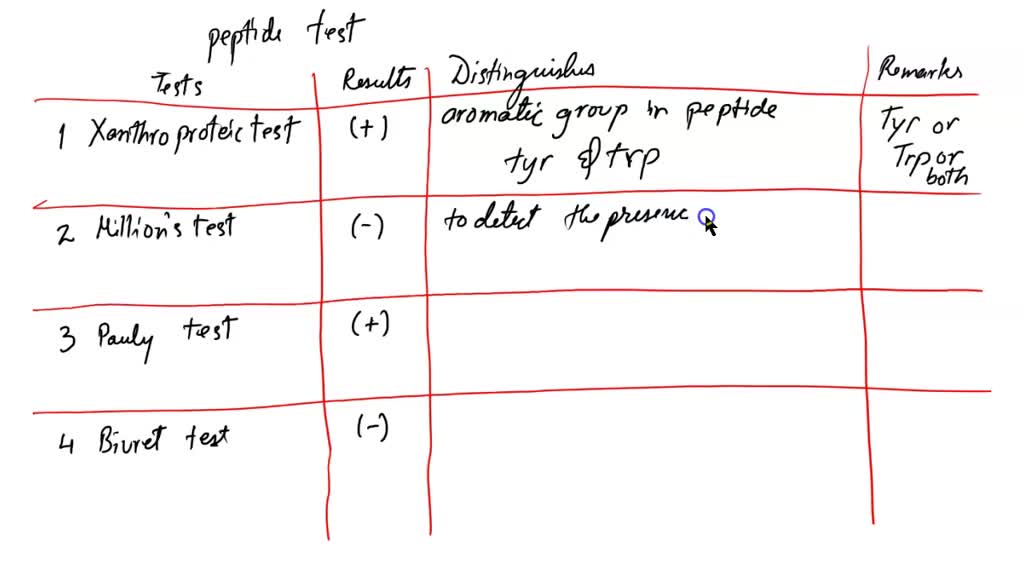 peptide test
Tests Results Distinguishes Remarks
1 Xanthroproteic test (+) aromatic group in peptide Tyr or
tyr & trp Trp or
both
2 Million's test (-) to detect the presenc
3 Pauly test (+)
4 Biuret test (-)